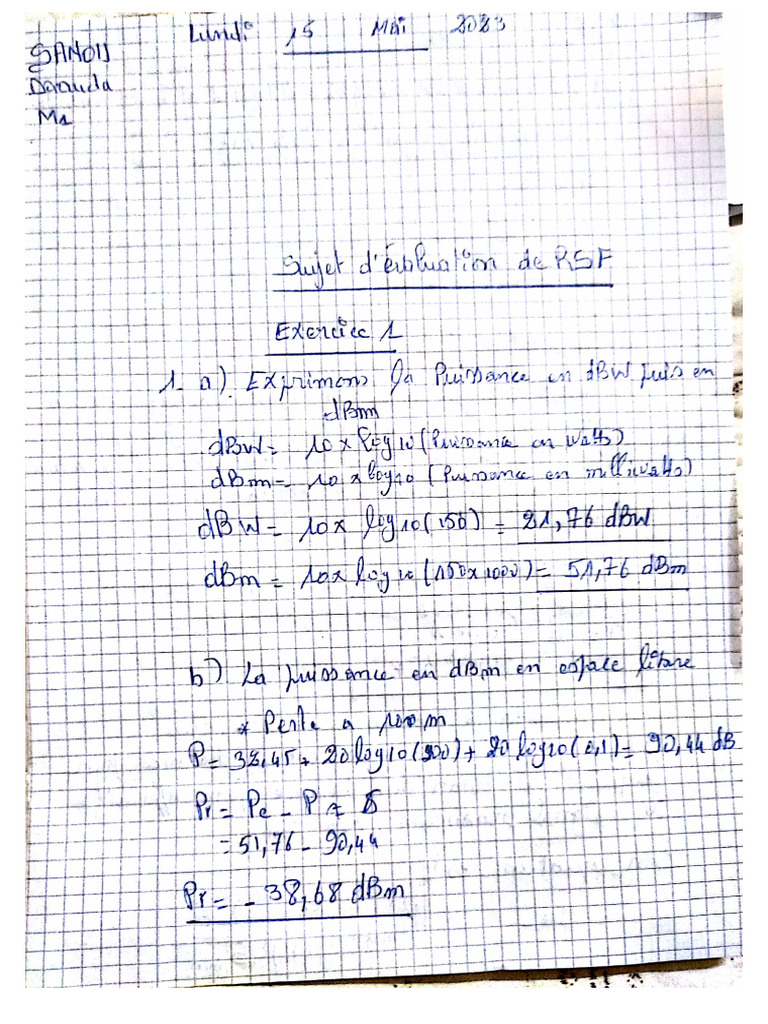 Lundi 15 Mai 2023
SANOU
Daouda
M1
Sujet d'évaluation de RSF
Exercice 1
1- a). Exprimons la Puissance en dBW puis en
dBm
dBW = 10 x log10 (Puissance en watts)
dBm = 10 x log10 (Puissance en milliwatts)
dBW = 10x log10(150) = 21,76 dBW
dBm = 10x log10 (150x1000) = 51,76 dBm
b) La puissance en dBm en espace libre
* Perte a 100m
P = 32,45 + 20log10(900) + 20 log10(0,1) = 90,44 dB
Pr = Pe - P
= 51,76 - 90,44
Pr = - 38,68 dBm